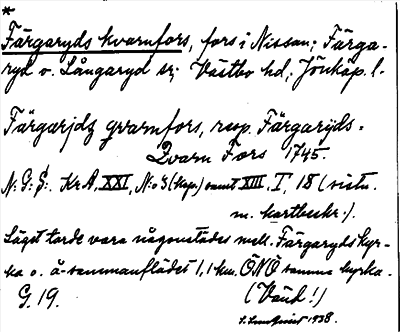 *
Färgaryds kvarnfors, fors i Nissan; Färga-
ryd o. Långaryd sn; Västbo hd, Jönköp. l.
Färgærjdz qvarnfors, resp. Färgarijds=
Qvarn Fors 1745.
N: G: S: Kr A, XXI, N:o 3 (Kop.) samt XIII, I, 18 (sistn.
m. kartbeskr.).
Läget torde vara någonstädes mell. Färgaryds kyr-
ka o. å-sammanflödet 1,1 km. ÖNÖ samma kyrka.
G. 19.
(Vänd!)
1938.